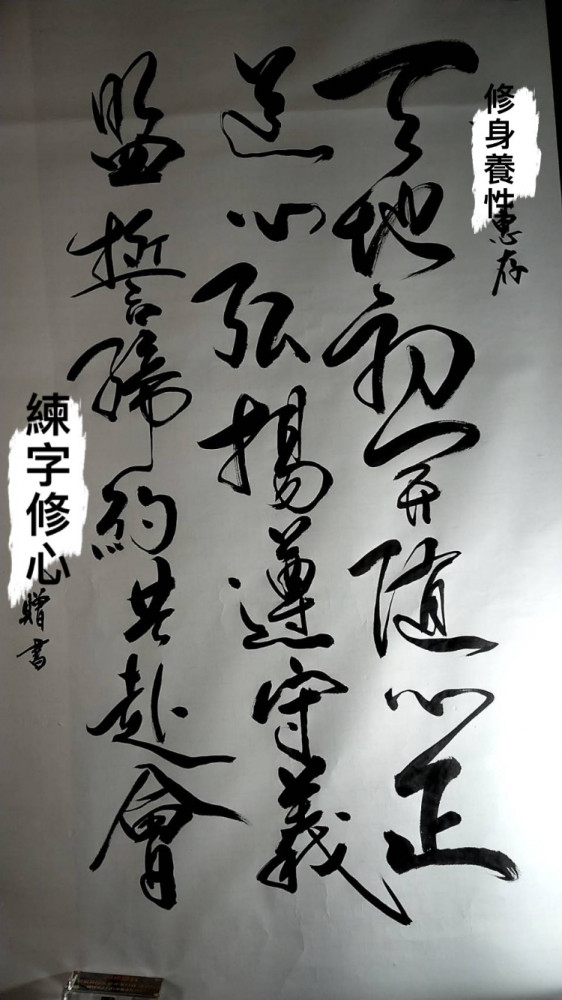 修身養性惠存
天地初開隨心正
道心弘揚遵守義
盟誓締約共赴會
練字修心贈書